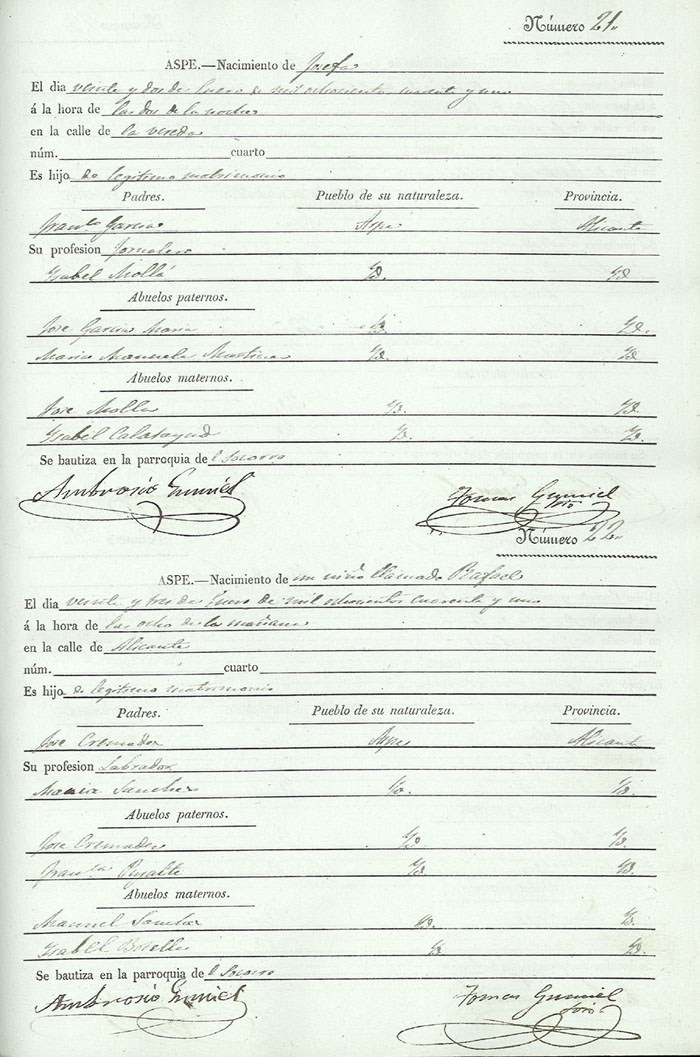 Número 21.
ASPE.—Nacimiento de Josefa
El dia veinte y dos de Enero de mil ochocientos cuarenta y uno
á la hora de las dos de la noche
en la calle de la vereda
núm. cuarto
Es hijo de legitimo matrimonio
Padres. Pueblo de su naturaleza. Provincia.
Franco Garcia Aspe Alicante
Su profesion Jornalero
Ysabel Mollá Yd. Yd.
Abuelos paternos.
Jose Garcia Maria Yd. Yd.
Maria Manuela Martinez Yd. Yd.
Abuelos maternos.
Jose Molla Yd. Yd.
Ysabel Calatayud Yd. Yd.
Se bautiza en la parroquia de l Socorro
Ambrosio Gumiel Tomas Gumiel
Srio
Número 22.
ASPE.—Nacimiento de un niño llamado Rafael
El dia veinte y tres de Enero de mil ochocientos cuarenta y uno
á la hora de las ocho de la mañana
en la calle de Alicante
núm. cuarto
Es hijo de legitimo matrimonio
Padres. Pueblo de su naturaleza. Provincia.
Jose Cremades Aspe Alicante
Su profesion Labrador
Maria Sanchez Yd. Yd.
Abuelos paternos.
Jose Cremades Yd. Yd.
Franca Yd. Yd.
Abuelos maternos.
Manuel Sanchez Yd. Yd.
Ysabel Botella Yd. Yd.
Se bautiza en la parroquia de l Socorro
Ambrosio Gumiel Tomas Gumiel
Srio